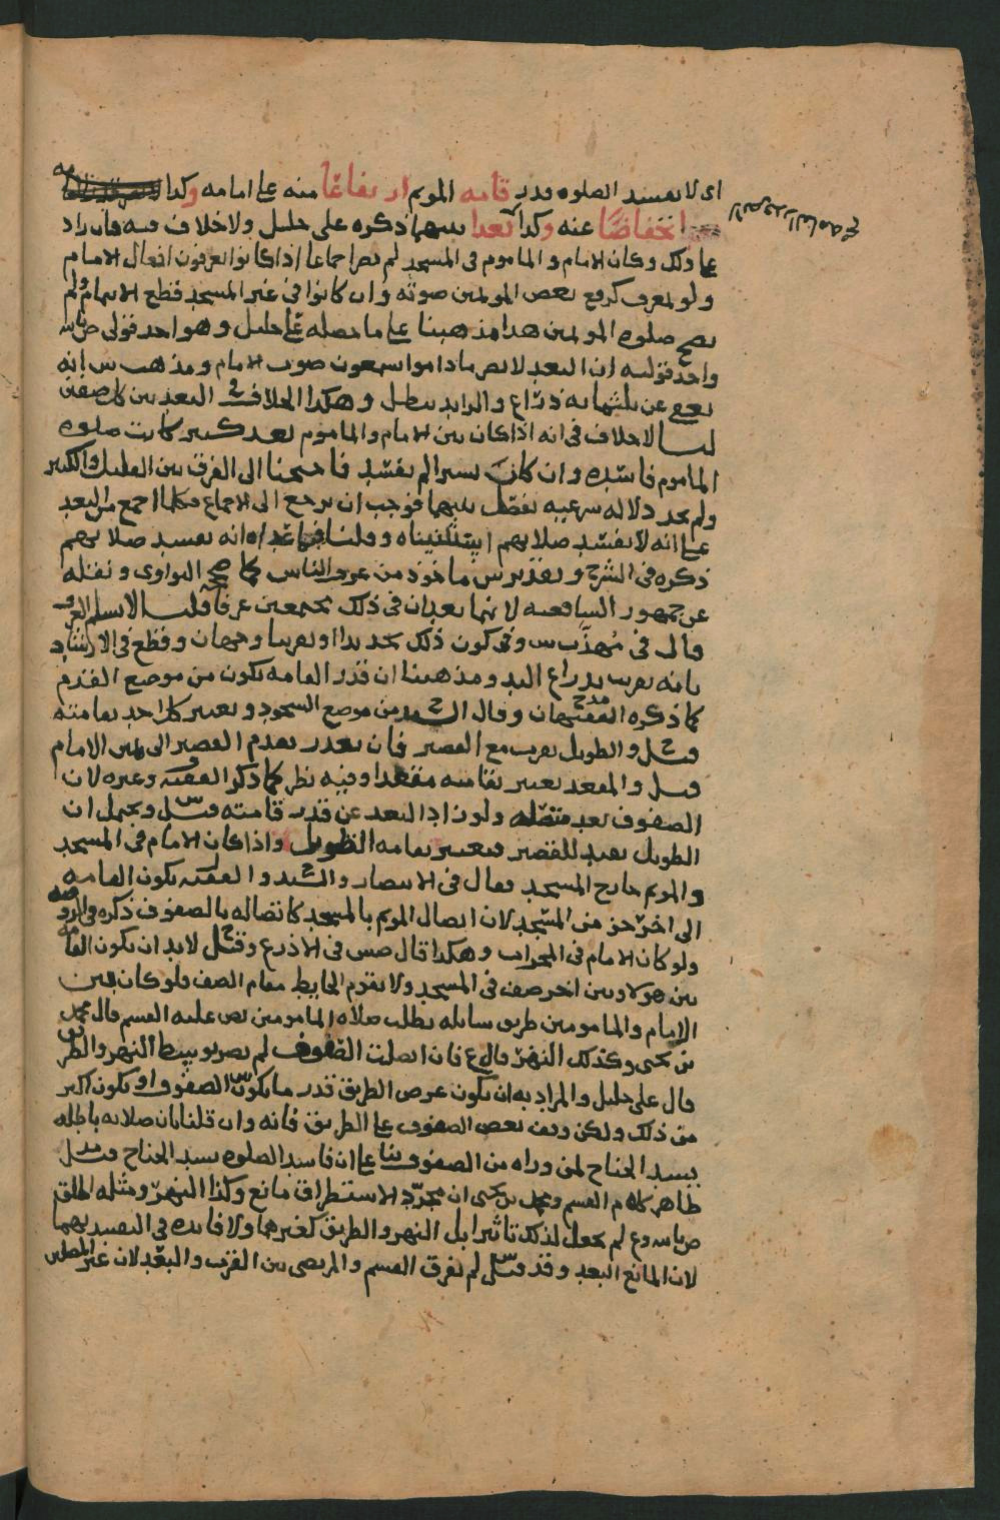 اى لا يفسد الصلوه قدر قامه الموتم ارتفاعا منه على امامه وكدا
انخفاضا عنه وكدا بعدا بينهما ذكره على خليل ولا خلاف فيه فان زاد
على ذلك وكان الامام والماموم فى المسجد لم يضر اجماعا اذا كانوا يعرفون افعال الامام
ولو بمعرف كرفع بعض المولمين صوته وان كانوا فى غير المسجد قطع الايتمام ولم
يصح صلوه المولمين هدا مذهبنا على ما حصله على خليل وهو احد قولى
واحد قوليه ان البعد لا يضر ما داموا يسمعون صوت الامام ومذهب س انه
يعفى عن ثلثمائه ذراع والزايد يبطل وهكدا الخلاف فى البعد بين كل صفين
لنا لا خلاف فى انه اذا كان بين الامام والماموم بعد كبير كانت صلوه
الماموم فاسده وان كان يسيرا لم يفسد فاحتجنا الى الفرق بين القليل والكثير
ولم نجد دلاله شرعيه تفصل بينهما فوجب ان يرجع الى الاجماع فكلما اجمع من البعد
على انه لا يفسد صلاتهم استثنيناه وقلنا فيما عداه انه يفسد صلاتهم
ذكره فى الشرح وتقدير س ماخوذ من عرف الناس كما صححه النواوى ونقله
عن جمهور الشافعيه لانهما يعدان فى ذلك مجتمعين عرفا قلنا لا نسلم العرف
قال فى مهذب س وفى كون ذلك تحديدا او تقريبا وجهان وقطع فى الارشاد
بانه تقريب بذراع اليد ومذهبنا ان قدر القامه يكون من موضع القدم
كما ذكره الفقيهان وقال السيد من موضع السجود ويعتبر كل احد بقامته
قيل والطويل يقرب مع القصير فان تعذر تقدم القصير الى يمين الامام
قيل والمقعد يعتبر بقامته مقعدا وفيه نظر كما ذكر الفقيه وغيره لان
الصفوف بعد متصله ولو زاد البعد عن قدر قامته قيل ويحتمل ان
الطويل يعيد للقصير فيعتبر بقامه الطويل واذا كان الامام فى المسجد
والموتم خارج المسجد فقال فى الانتصار والسيد والفقيه يكون القامه
الى اخر جزء من المسجد لان اتصال الموتم بالمسجد كاتصاله بالصفوف ذكره فى الروضه
ولو كان الامام فى المحراب وهكدا قال ض فى الاذرع وقيل لا بد ان يكون القامه
بين هولا وبين اخر صف فى المسجد ولا يقوم الحايط مقام الصف فلو كان بين
الامام والمامومين طريق سابله بطلت صلاه المامومين نص عليه القسم قال محمد
بن يحيى وكذلك النهر قال ع فان اتصلت الصفوف لم يضر توسط النهر والطريق
قال على خليل والمراد به ان يكون عرض الطريق قدر ما يكون الصفوف او يكون اكبر
من ذلك ولكن وقف بعض الصفوف على الطريق فانه وان قلنا بان صلاته باطله
بسد الجناح لمن وراه من الصفوف بنا على ان فاسد الصلوه يسد الجناح قيل
ظاهر كلام القسم ومحمد بن يحيى ان مجرد الاستطراق مانع وكذا النهر ومثله اطلق
ض وع لم يجعل لذلك تاثيرا بل النهر والطريق كغيرهما ولا فايده فى التقييد بهما
لان المانع البعد وقد قيل لم يفرق القسم والمرتضى بين القرب والبعد لان